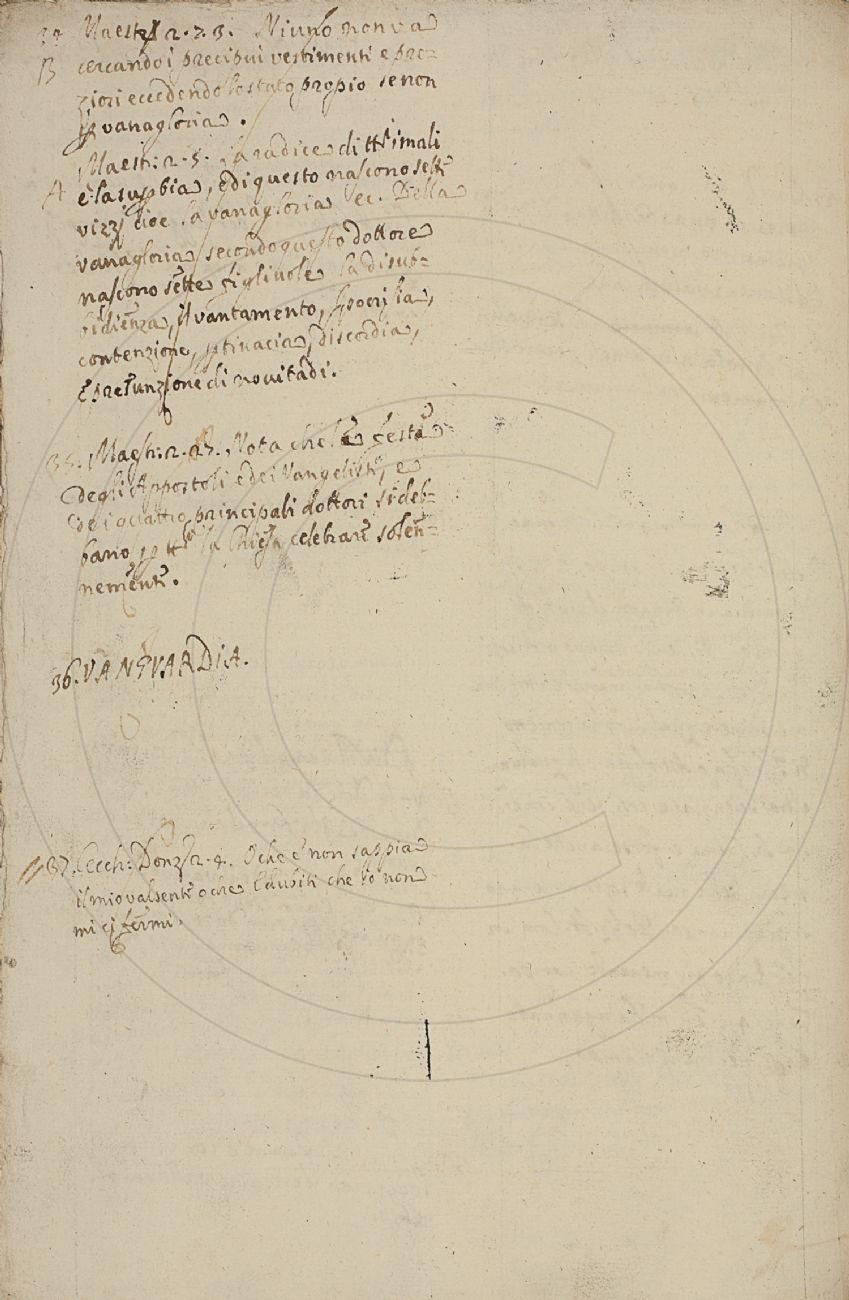 34 Maestr. 2. 7. 3. Niuno non va
B cercando i precipui vestimenti e pre-
ziori eccedendo lo stato propio se non
p vanagloria.
Maestr: 2. 5. la radice di tti i mali
A è la supbia, e di questo nascono sette
vizzj cioè la vanagloria ec. Della
vanagloria secondo questo dottore
nascono sette figliuole la disub-
bidienza, il vantamento, Ipocrisia,
contenzione, ptinacia, discordia,
e presunzione di novitadi.
35. Maestr: 2. 27. Nota che le feste
degli Appostoli e dei Vangelisti, e
dei quattro principali dottori si deb-
bano p tta la Chiesa celebrare solen-
nemente.
36. VANGUARDIA.
37. Cecch: Donz. 2. 4. O che e' non sappia
il mio valsente o che dubiti che io non
mi ci fermi.